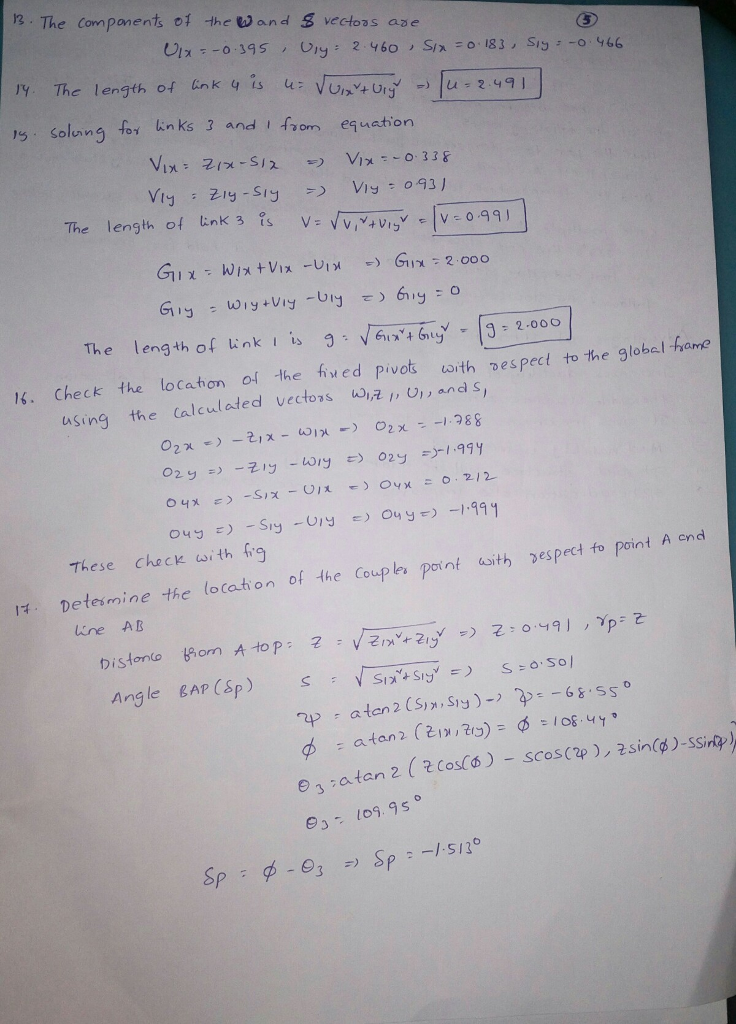 13. The components of the W and S vectors are
5
U1x = -0.395 , U1y = 2.460 , S1x = 0.183 , S1y = -0.466
14. The length of link 4 is u = √U1x²+U1y² => u = 2.491
15. Solving for links 3 and 1 from equation
V1x = Z1x-S1x => V1x = -0.338
V1y = Z1y-S1y => V1y = 0.931
The length of link 3 is V = √V1²+V1y² = V = 0.991
G1x = W1x+V1x-U1x => G1x = 2.000
G1y = W1y+V1y-U1y => G1y = 0
The length of link 1 is g = √G1x²+G1y² = g = 2.000
16. Check the location of the fixed pivots with respect to the global frame
using the calculated vectors W1, Z1, U1, and S1
O2x => -Z1x-W1x => O2x = -1.788
O2y => -Z1y-W1y => O2y => -1.994
O4x => -S1x-U1x => O4x = 0.212
O4y => -S1y-U1y => O4y => -1.994
These check with fig
17. Determine the location of the coupler point with respect to point A and
line AB
Distance from A to p: Z = √Z1x²+Z1y² => Z = 0.491 , rp = Z
Angle BAP (δp) S = √S1x²+S1y² => S = 0.501
ψ = atan2 (S1x, S1y) => ψ = -68.55°
φ = atan2 (Z1x, Z1y) = φ = 108.44°
θ3 = atan2 (Zcos(φ) - Scos(ψ), Zsin(φ)-Ssin(ψ))
θ3 = 109.95°
δp = φ - θ3 => δp = -1.513°